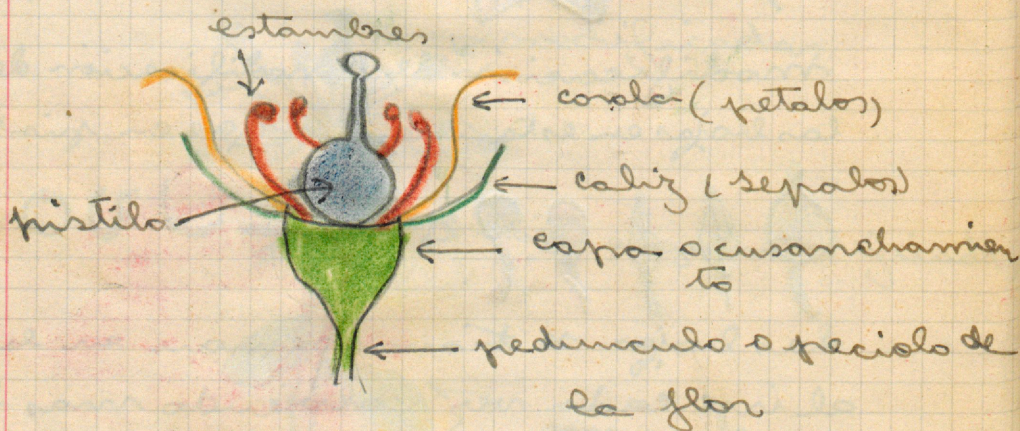 estambres
corola (petalos)
caliz (sepalos)
pistilo
capa o ensanchamien
to
pedunculo o peciolo de
la flor